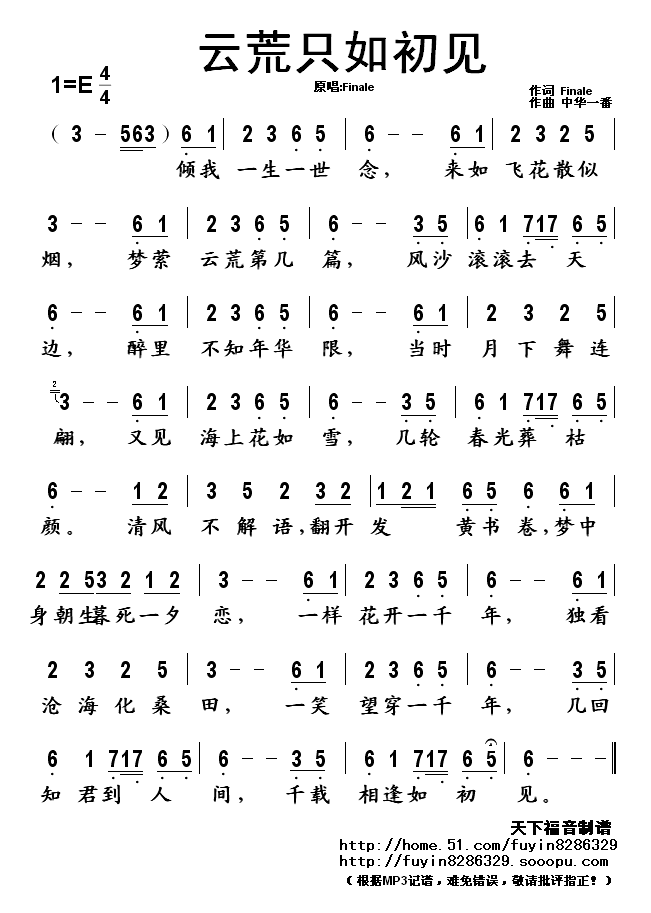 云荒只如初见
1=E 4/4
原唱:Finale
作词 Finale
作曲 中华一番
( 3 - 563 ) 6 1 | 2 3 6 5 | 6 - - 6 1 | 2 3 2 5 |
倾我 一生一世 念， 来如 飞花散似
3 - - 6 1 | 2 3 6 5 | 6 - - 3 5 | 6 1 717 6 5 |
烟， 梦萦 云荒第几 篇， 风沙 滚滚去 天
6 - - 6 1 | 2 3 6 5 | 6 - - 6 1 | 2 3 2 5 |
边， 醉里 不知年华 限， 当时 月下舞连
2 3 - - 6 1 | 2 3 6 5 | 6 - - 3 5 | 6 1 717 6 5 |
翩， 又见 海上花如 雪， 几轮 春光葬 枯
6 - - 1 2 | 3 5 2 3 2 | 1 2 1 6 5 6 6 1 |
颜。 清风 不解语,翻开 发 黄书卷,梦中
2 2 5 3 2 1 2 | 3 - - 6 1 | 2 3 6 5 | 6 - - 6 1 |
身朝生暮死一夕 恋， 一样 花开一千 年， 独看
2 3 2 5 | 3 - - 6 1 | 2 3 6 5 | 6 - - 3 5 |
沧海化桑 田， 一笑 望穿一千 年， 几回
6 1 717 6 5 | 6 - - 3 5 | 6 1 717 6 5 | 6 - - - ‖
知君到 人 间， 千载 相逢如 初 见。
天下福音制谱
http://home.51.com/fuyin8286329
http://fuyin8286329.sooopu.com
（根据MP3记谱，难免错误，敬请批评指正！）